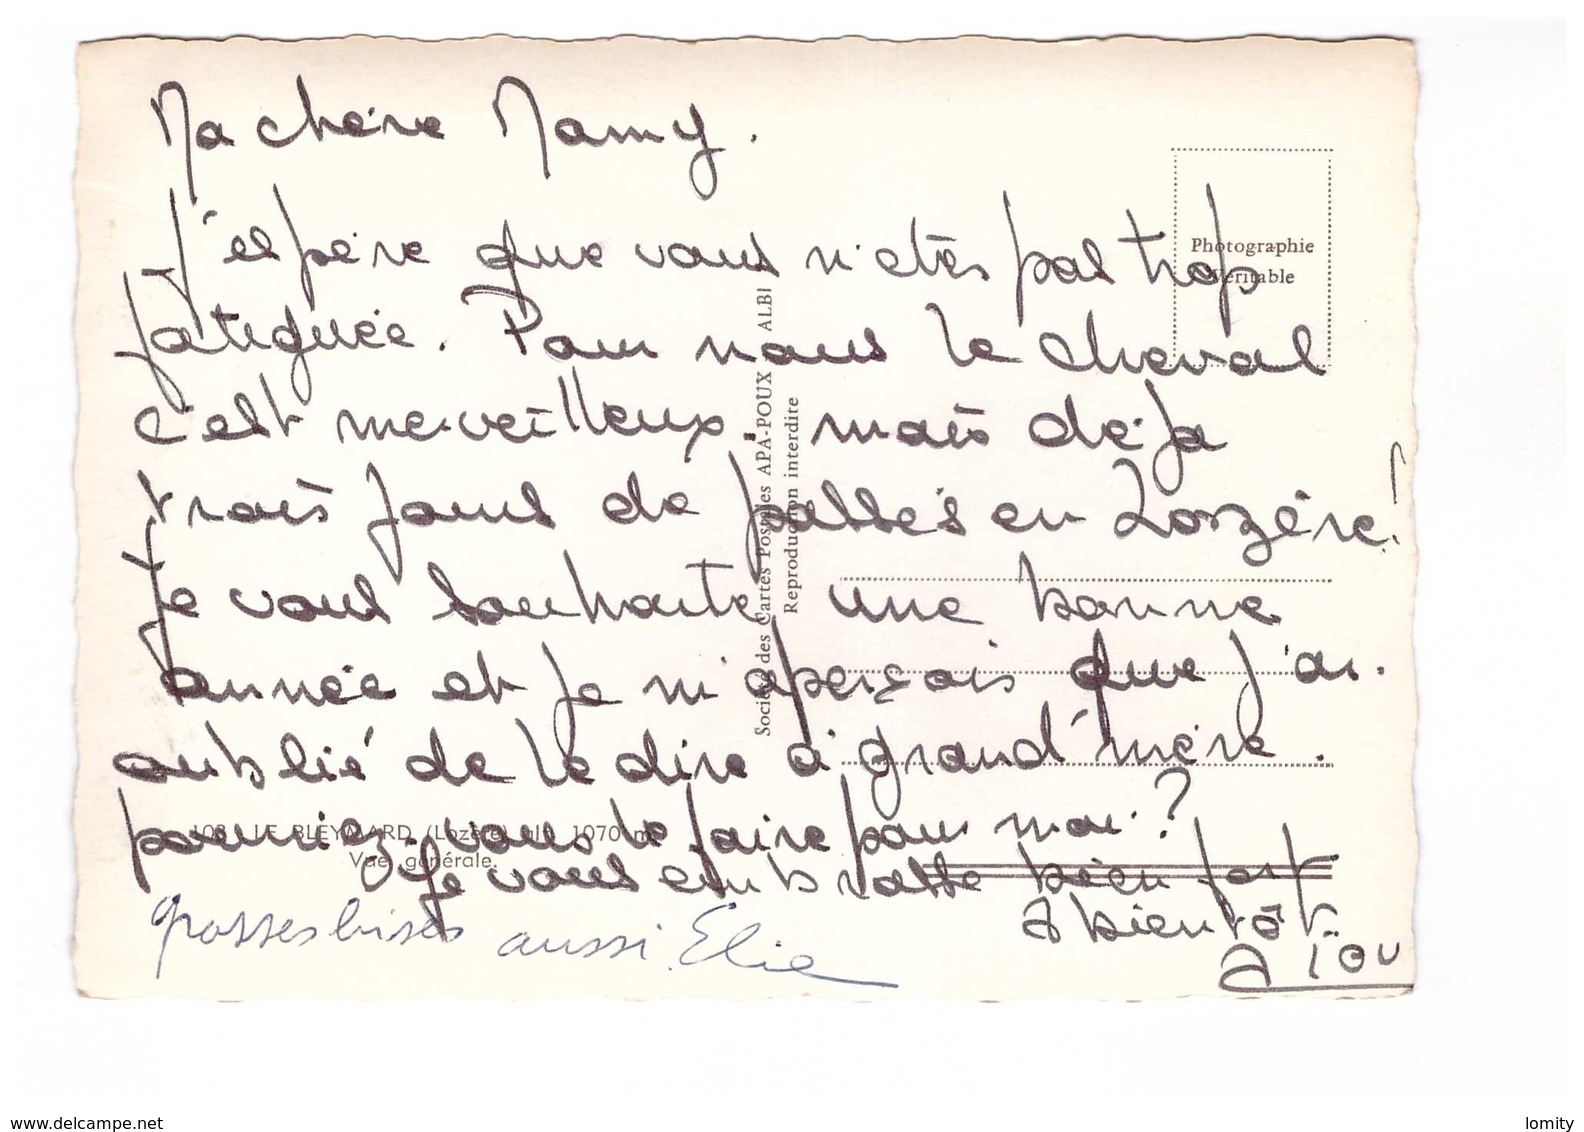 Ma chère Mamy.
J'espère que vous n'etès pas trop
fatiguée. Pour nous le cheval
c'est merveilleux. mais déja
trois jours de passés en Lozère!
Je vous souhaite une bonne
année et je m'aperçois que j'ai
oublié de le dire à grand'mère.
pourriez vous le faire pour moi?
Je vous embrasse bien fort
A bientôt.
grosses bises aussi. Elie
Photographie
Véritable
Société des Cartes Postales APA-POUX ALBI
Reproduction interdite
LE BLEYMARD (Lozère) alt. 1070 m.
Vue générale.
www.delcampe.net
lomity